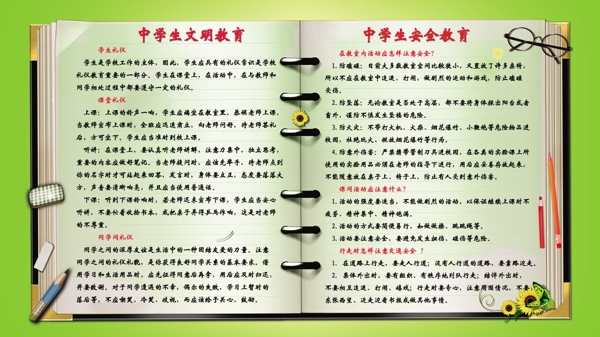 中学生文明教育
学生礼仪
学生是学校工作的主体，因此，学生应具有的礼仪常识是学校
礼仪教育重要的一部分。学生在课堂上，在活动中，在与教师和
同学相处过程中都要遵守一定的礼仪。
课堂礼仪
上课：上课的铃声一响，学生应端坐在教室里，恭候老师上课，
当教师宣布上课时，全班应迅速肃立，向老师问好，待老师答礼
后，方可坐下。学生应当准时到校上课。
听讲：在课堂上，要认真听老师讲解，注意力集中，独立思考，
重要的内容应做好笔记。当老师提问时，应该先举手，待老师点到
你的名字时才可站起来回答，发言时，身体要立正，态度要落落大
方，声音要清晰响亮，并且应当使用普通话。
下课：听到下课铃响时，若老师还未宣布下课，学生应当安心
听讲，不要忙着收拾书本，或把桌子弄得乒乓作响，这是对老师
的不尊重。
同学间礼仪
同学之间的深厚友谊是生活中的一种团结友爱的力量。注意
同学之间的礼仪礼貌，是你获得良好同学关系的基本要求。借
用学习和生活用品时，应先征得同意后再拿，用后应及时归还，
并要致谢。对于同学遭遇的不幸，偶尔的失败，学习上暂时的
落后等，不应嘲笑、冷笑、歧视，而应该给予关心、鼓励。
中学生安全教育
在教室内活动应怎样注意安全？
1. 防磕碰：目前大多数教室空间比较狭小，又置放了许多桌椅，
所以不应在教室中追逐、打闹，做剧烈的运动和游戏，防止磕碰
受伤。
2. 防坠落：无论教室是否处于高层，都不要将身体探出阳台或者
窗外，谨防不慎发生坠楼的危险。
3. 防火灾：不带打火机、火柴、烟花爆竹、小鞭炮等危险物品进
校园，杜绝玩火、燃放烟花爆竹等行为。
4. 防意外伤害：严禁携带管制刀具进校园，在各类的实验课上所
使用的实验用品必须在老师的指导下进行，用后应妥善存放起来，
不能随意放在桌子上、椅子上，防止有人受到意外伤害。
课间活动应注意什么？
1. 活动的强度要适当，不能做剧烈的活动，以保证继续上课时不
疲劳、精神集中、精神饱满。
2. 活动的方式要简便易行，如做做操、跳跳绳等。
3. 活动要注意安全，要避免发生扭伤、碰伤等危险。
行走时怎样注意交通安全 ？
1. 在道路上行走，要走人行道；没有人行道的道路，要靠路边走。
2. 集体外出时，要有组织、有秩序地列队行走；结伴外出时，
不要相互追逐、打闹、嬉戏；行走时要专心，注意周围情况，不要
东张西望、边走边看书报或做其他事情。